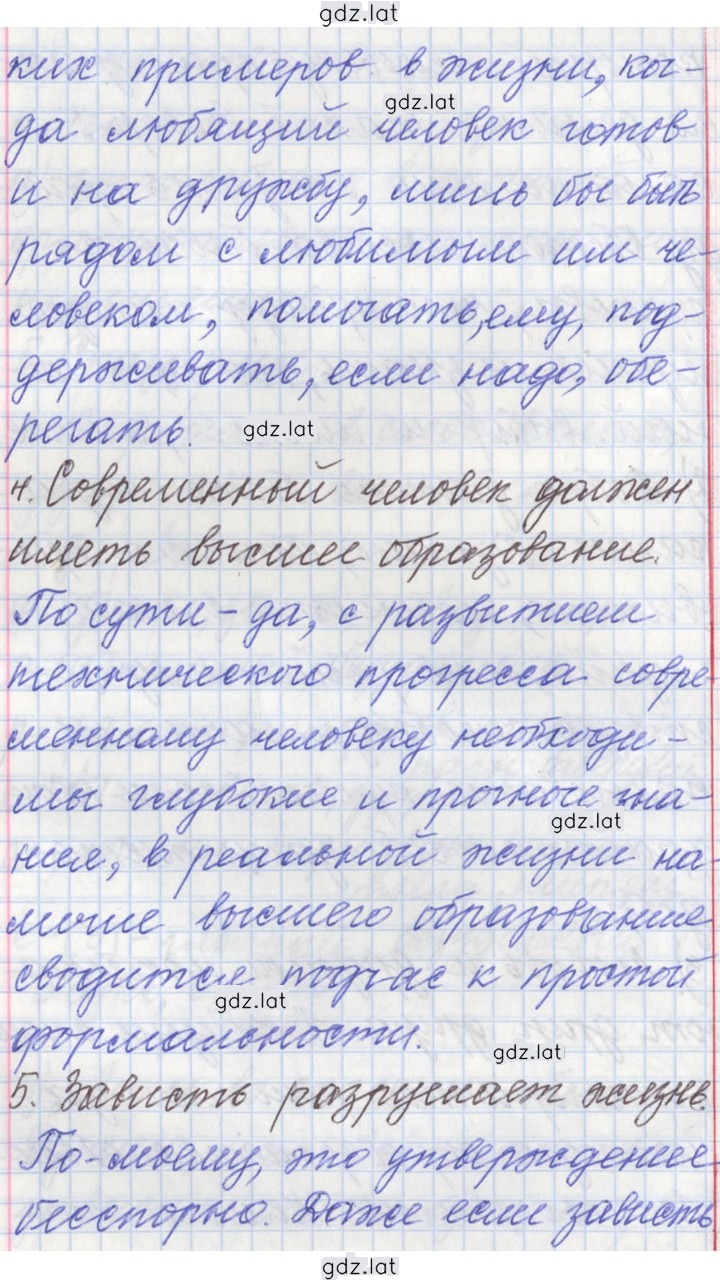 gdz.lat
ких примеров в жизни, ког-
gdz.lat
да любящий человек готов
и на дружбу, лишь бы быть
рядом с любимым им че-
ловеком, помогать, ему, под-
держивать, если надо, обе-
регать.
gdz.lat
4. Современный человек должен
иметь высшее образование.
По сути - да, с развитием
технического прогресса совре-
менному человеку необходи-
мы глубокие и прочные зна-
gdz.lat
ния, в реальной жизни на-
личие высшего образование
сводится подчас к простой
gdz.lat
формальности.
gdz.lat
5. Зависть разрушает жизнь.
По-моему, это утверждение
бесспорно. Даже если зависть
gdz.lat